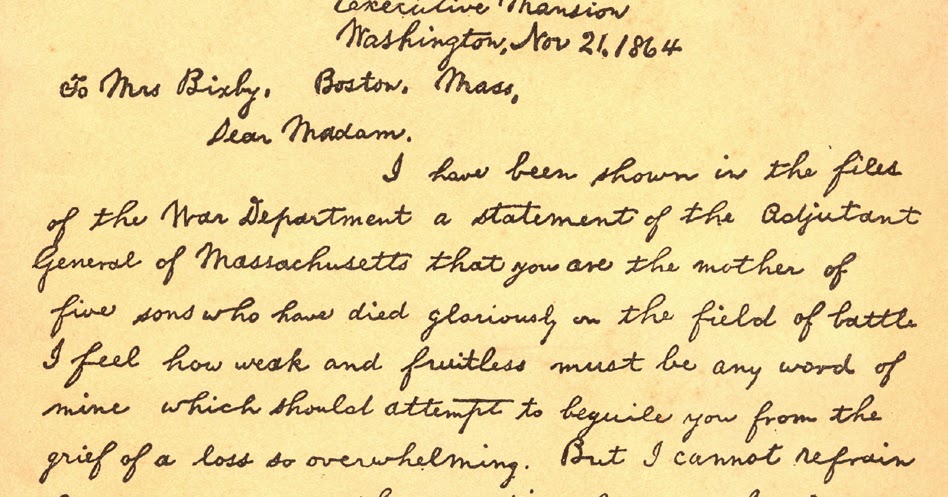 Executive Mansion
Washington, Nov 21, 1864
To Mrs Bixby, Boston, Mass,
Dear Madam.
I have been shown in the files
of the War Department a statement of the Adjutant
General of Massachusetts that you are the mother of
five sons who have died gloriously on the field of battle
I feel how weak and fruitless must be any word of
mine which should attempt to beguile you from the
grief of a loss so overwhelming. But I cannot refrain